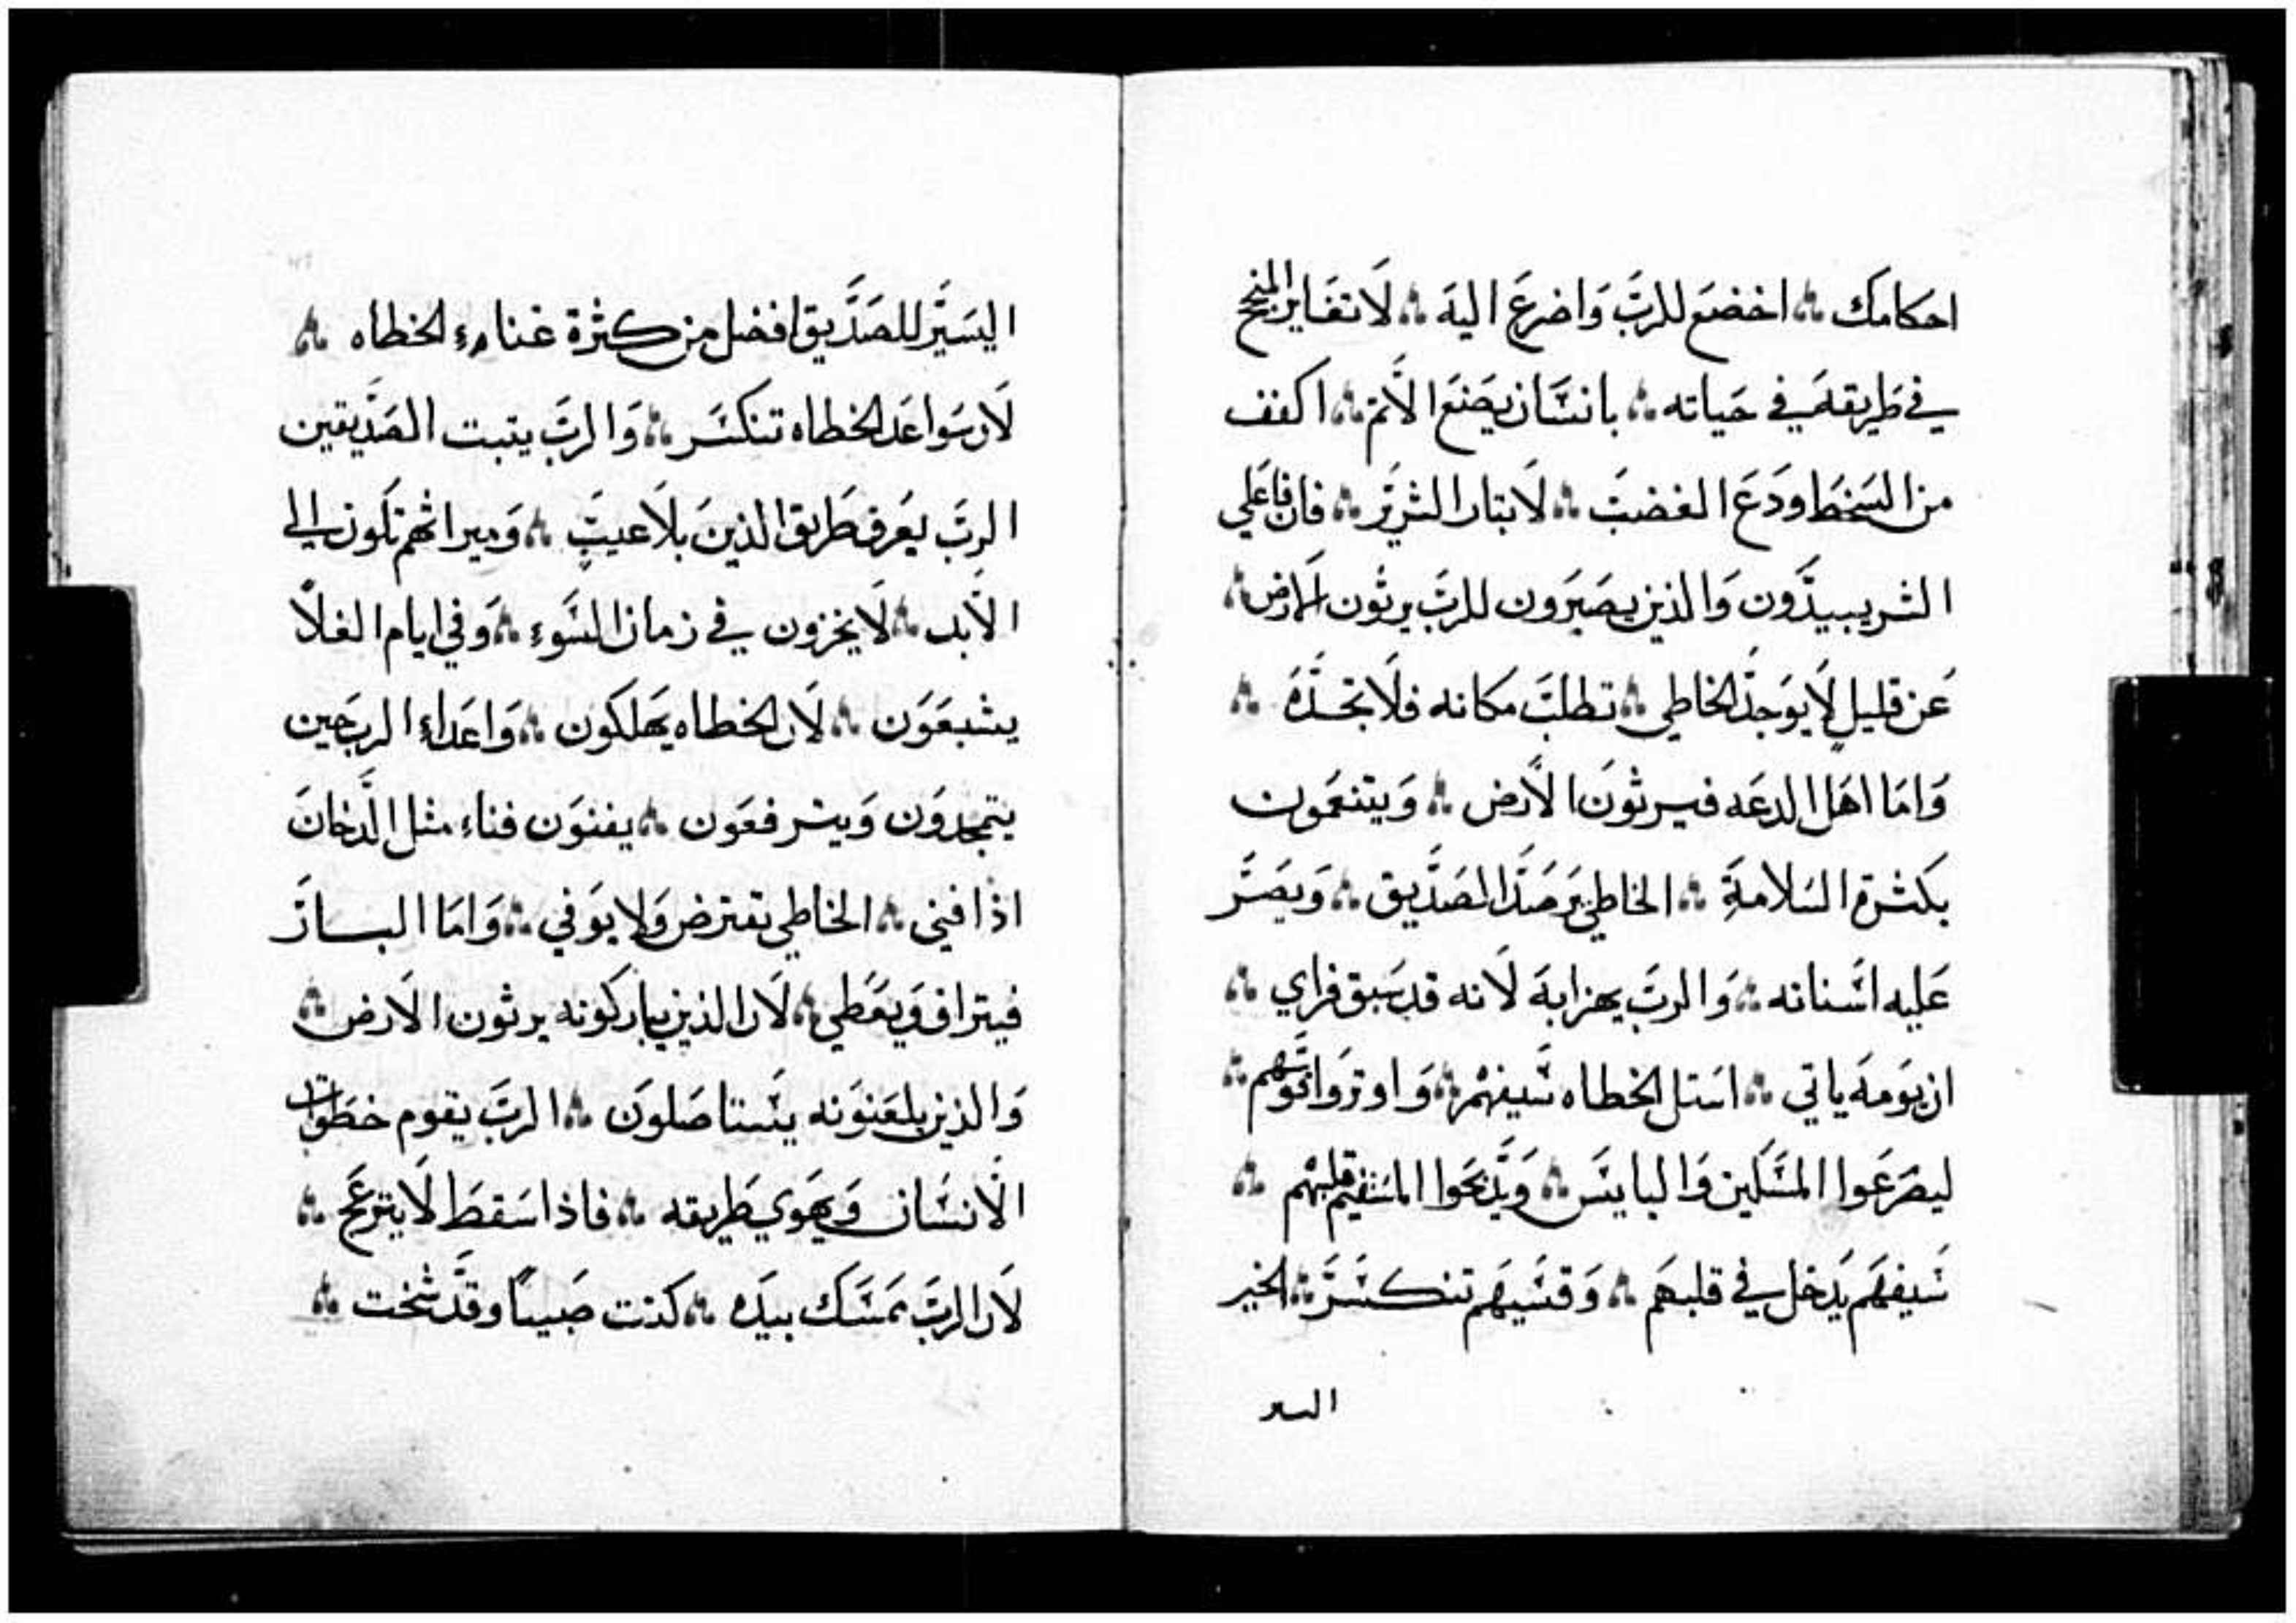 احكامك ∴ اخضع للربَّ وَاضرعَ اليهَ ∴ لَا تغَاير المنجح
في طَريقهَ في حَياته ∴ بانسَان يصَنعَ الَاثم ∴ اكفف
من السَخطَ ودَعَ الغضبَ ∴ لَا تبتار الشريَر ∴ فان فاعَلي
الشر يبيدَون وَالذين يصَبَرون للربَّ يرثون الارض ∴
عَن قليل لَا يوَجدَ الخاطي ∴ تطلبَ مكانه فلَا تجَدَهَ ∴
وَامَا اهَل الدعَه فيرثونَ الَارض ∴ وَيتنعَمون
بكثرة السَلامةَ ∴ الخاطي يَرصَدَ الصَدَّيق ∴ وَيصَرَ
عَليه اسَنانه ∴ وَالربَّ يهزابهَ لَانه قد سَبق فراي ∴
ان يوَمهَ ياتي ∴ اسَتل الخطاه سَيفهم ∴ وَاوتروَا قوسَهم ∴
ليصَرعَوا المسَكين وَالبايسَ ∴ وَيذَبحَوا المسَتقيم قلبهم ∴
سَيفهَم يَدخل في قلبهَم ∴ وَقسَيهَم تنكسَرَ ∴ الخير
اليسر
اليسَيَر للصَدَّيق افضل من كثرة غناء الخطاه ∴
لَان سَواعَد الخطاه تنكسَر ∴ وَالربَّ يتبت الصَدَّيقين
الربَّ يعَرف طَريق الذينَ بلَا عيبَ ∴ وَميراثهم تَكون الي
الَابد ∴ لَا يخزون في زمان السَوء ∴ وَفي ايام الغلَا
يشبعَوَن ∴ لَان الخطاه يهَلكون ∴ وَاعَداء الرب حَين
يتمجدوَن وَيترفعَون ∴ يفنوَن فناء مثل الدَخانَ
اذا فني ∴ الخاطي يقترض وَلا يوَفي ∴ وَامَا البارَ
فيتراف وَيعَطي ∴ لَان الذين يباركونه يرثون الَارض ∴
وَالذين يلعَنوَنه يسَتاصَلوَن ∴ الربَّ يقوم خطَوات
الَانسَان وَيهَوي طَريقه ∴ فاذا سَقطَ لَا ينزعَج ∴
لَان الربَّ يمَسَك بيدَه ∴ كنت صَبيًا وقدَ شَخت ∴